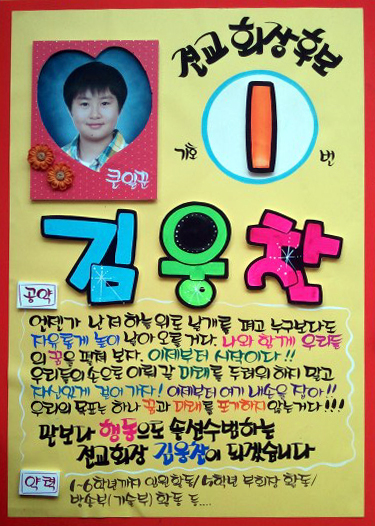 전교 회장후보
기호 1 번
큰일꾼
김응찬
공약
언젠가 난 저 하늘 위로 날개를 펴고 누구보다도
자유롭게 높이 날아 오를 거다. 나와 함께 우리들
의 꿈을 펼쳐 보자. 이제부터 시작이다!!
우리들의 손으로 이뤄 갈 미래를 두려워 하지 말고
자신있게 걸어 가자! 이제부터 여기 내 손을 잡아!!
우리의 목표는 하나 꿈과 미래를 포기하지 않는거다!!!
말보다 행동으로 솔선수범하는
전교회장 김응찬이 되겠습니다
약력
1~6학년까지 임원활동/ 5학년 부회장 활동/
방송부/ 기술부/ 활동 등....